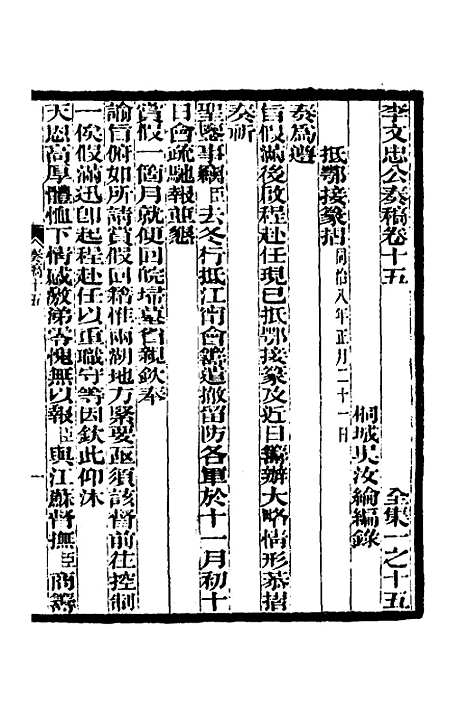 李文忠公奏稿卷十五 全集一之十五
桐城吳汝綸編錄
抵鄂接篆摺 同治八年正月二十一日
奏為遵
旨假滿後啟程赴任現已抵鄂接篆及近日籌辦大略情形恭摺
奏祈
聖鑒事竊臣去冬行抵江南會籌遣撤留防各軍於十一月初十
日會疏馳報並懇
賞假一箇月就便回皖埽墓省親欽奉
諭旨俯如所請賞假回籍惟兩湖地方緊要亟須該督前往控制
一俟假滿迅即起程赴任以重職守等因欽此仰沐
天恩高厚體恤下情感激涕零愧無以報臣與江蘇督撫臣商籌
奏稿十五 一